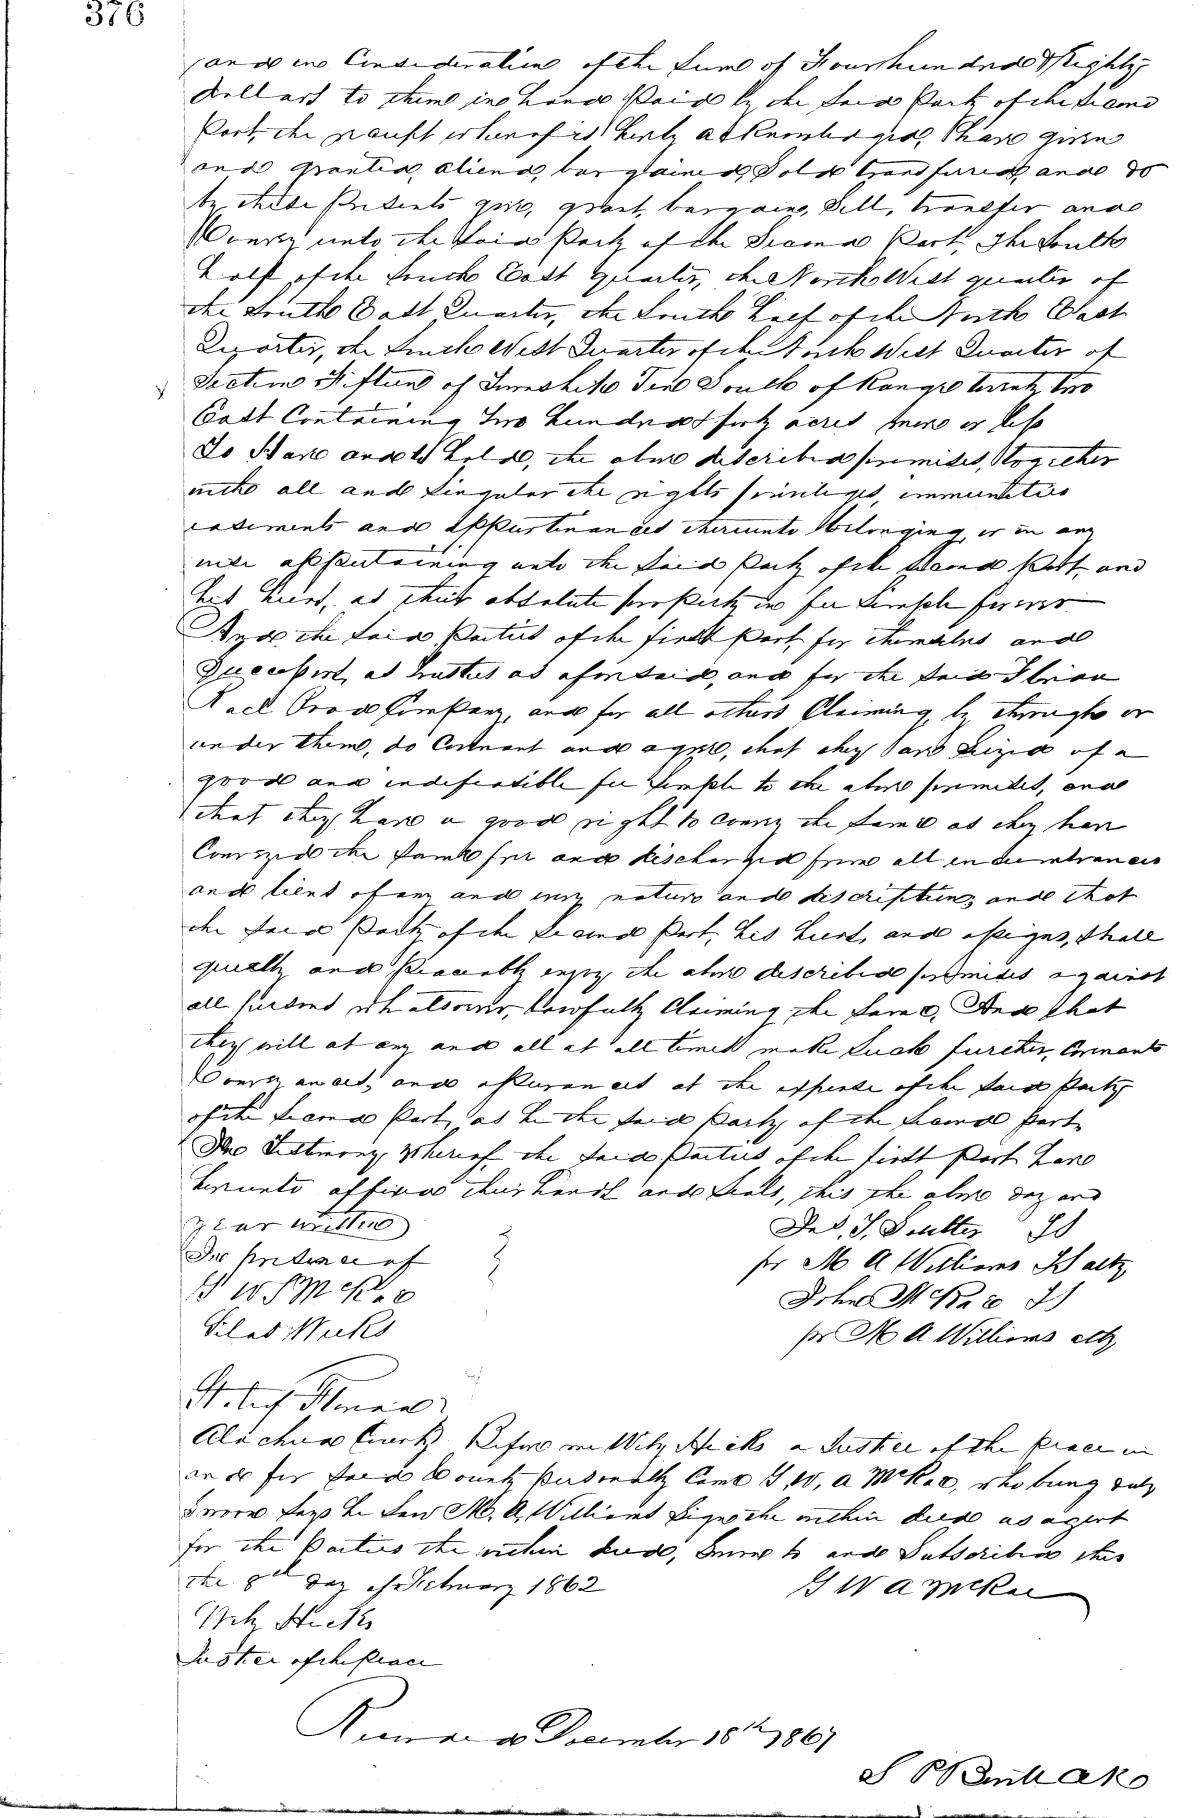 376
and in Consideration of the Sum of Four hundred & Eighty
dollars to them in hand Paid by the Said Party of the Second
Part, the receipt whereof is herby acknowledged, have given
and granted, aliend, bargained, Sold transfurred, and do
by these Presents give, grant, bargain, Sell, transfer and
Convey unto the Said Party of the Second Part, The South
half of the South East Quarter, the North West quarter of
the South East Quarter, the South half of the North East
Quarter, the South West Quarter of the North West Quarter of
Section Fifteen of Township Ten South of Range twenty two
East Containing Two hundred & forty acres more or less
To Have and to hold, the above described premises, together
with all and Singular the rights privileges, immunities
easements and appurtinances thereunto belonging, or in any
wise appertaining unto the Said Party of the Second Part, and
his heirs, as their absolute property in fee Simple forever
And the Said Parties of the first Part, for themselves and
Successors, as trustees as aforesaid, and for the Said Florida
Rail Road Company, and for all others Claiming, by through or
under them, do Covenant and agree, that they are Seized of a
good and indefeasible fee Simple to the above premises, and
that they have a good right to convey the Same as they have
Conveyed the Same free and discharged from all encumbrances
and liens of any and every nature and description, and that
the Said Party of the Second Part, his heirs, and assigns, Shall
quietly and Peaceably enjoy the above described premises against
all persons whatsoever, lawfully Claiming the Same, And that
they will at any and all at all times make Such further, Covenants
Conveyances, and assurances at the expense of the Said Party
of the Second Part, as he the Said Party of the Second Part
In Testimony Whereof, the Said Parties of the first Part have
hereunto affixed their hands and Seals, this the above day and
year written
In presence of
G W A McRae
Silas Weeks
Jas. T. Soutter
pr M A Williams atty
John McRae
pr M A Williams atty
State of Florida
Alachua County Before me Wily Hicks a Justice of the Peace in
and for Said County personally Came G, W, A McRae, who being duly
Sworn Says he Saw M. A, Williams Sign the within deed as agent
for the Parties the within deed, Sworn to and Subscribed this
the 8th day of February 1862
G W A McRae
Wily Hicks
Justice of the Peace
Received December 18th 1867
S